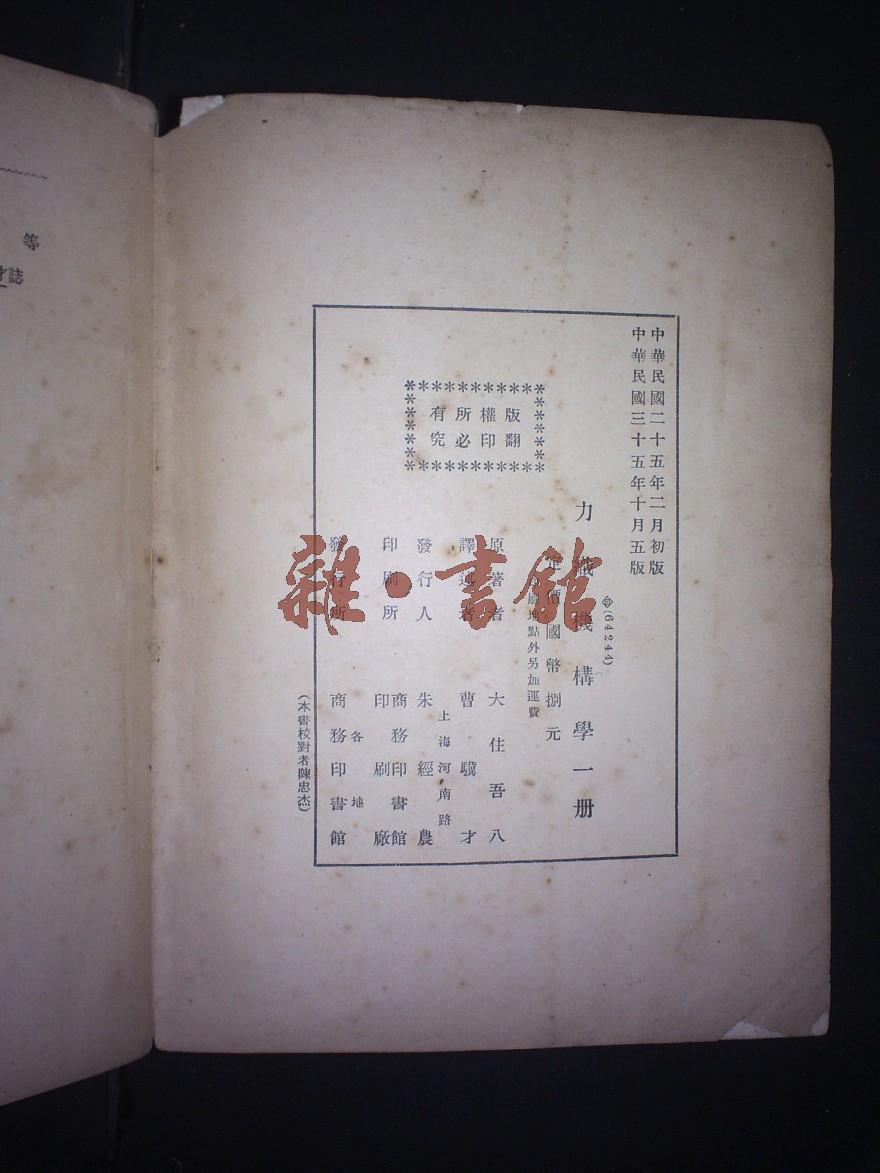 中華民國二十五年二月初版
中華民國三十五年十月五版
(64244)
力織機構學一册
定價國幣捌元
地點外另加運費
版權所有
翻印必究
原著者 大住吾八
譯述者 曹驥才
發行人 朱經農
上海河南路
印刷所 商務印書館印刷廠
發行所 各地 商務印書館
(本書校對者陳忠杰)
雜·書館
等
誌